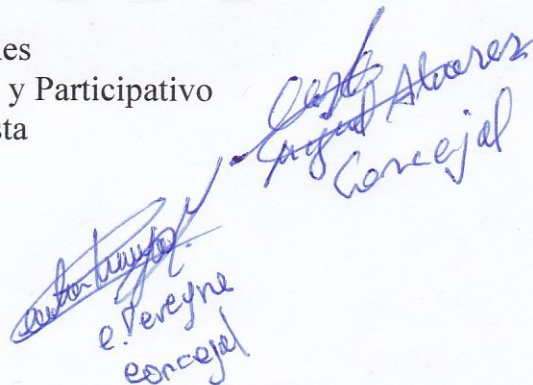 es
y Participativo
sta
Miguel Alvarez
Concejal
e. Pereyra
concejal